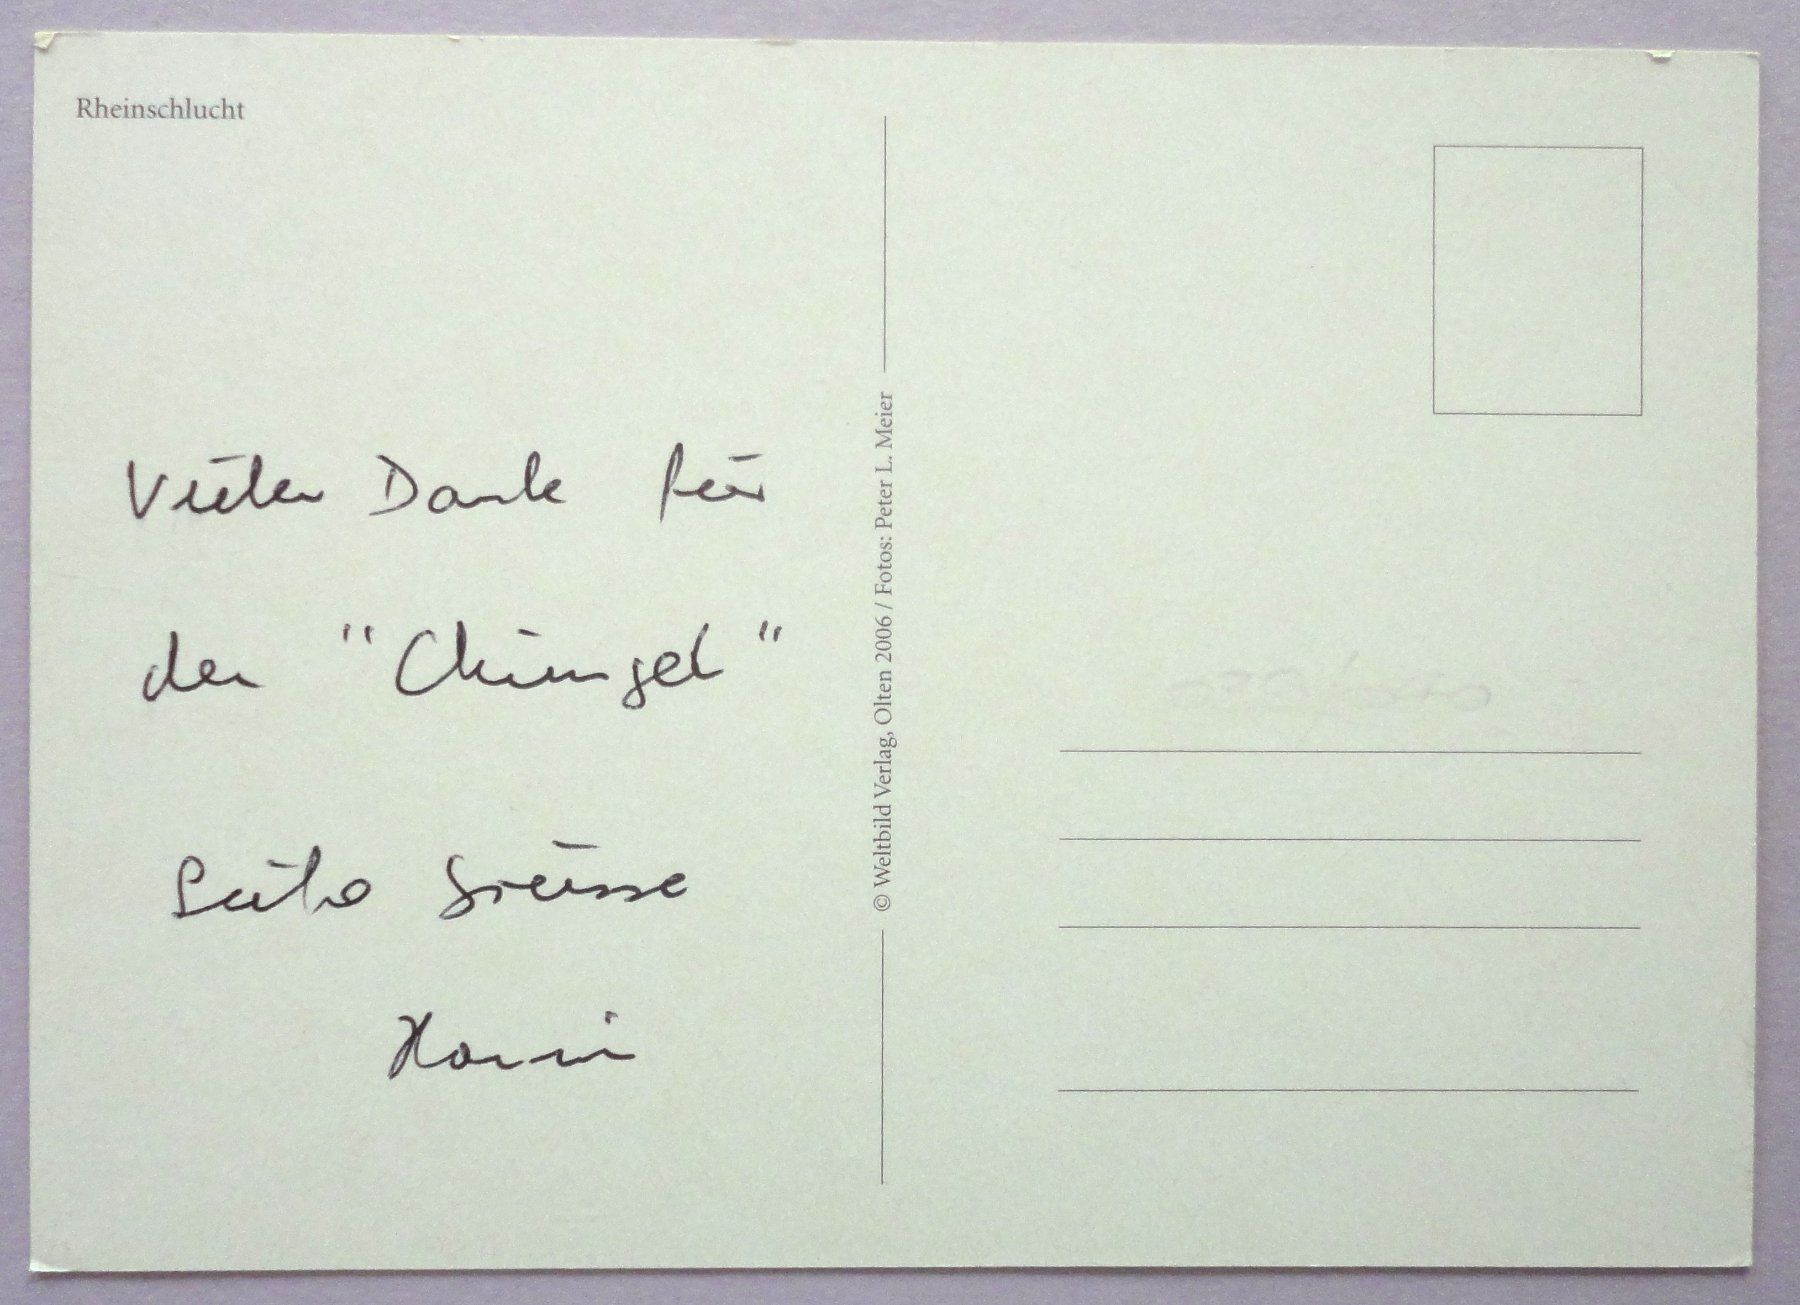 Rheinschlucht
Vielen Dank für
den "Chüngel"
Liebe Grüsse
© Weltbild Verlag, Olten 2006 / Fotos: Peter L. Meier